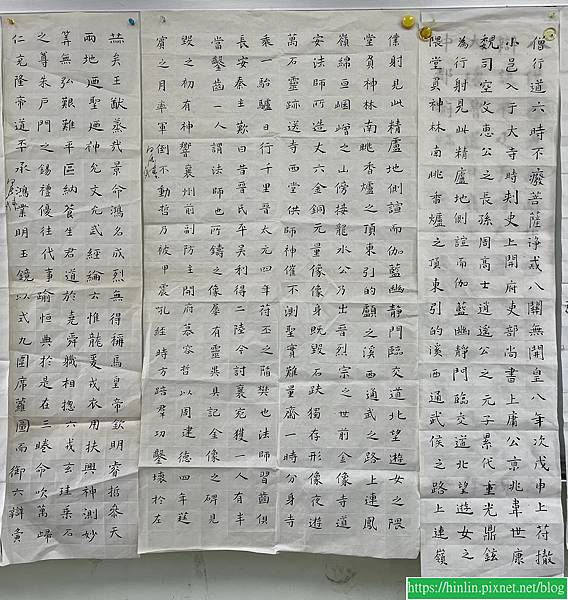 僧行道六時不廢菩薩淨戒八關無開皇八年次戊申上符撤
小邑入于大寺時刺史上開府吏部尚書上庸公京兆韋世康
魏司空文惠公之長孫周高士逍遙公之元子累代重光鼎鉉
為行射見此精廬地側諠而伽藍幽靜門臨交道北望遊女之
隈堂員神林南眺香爐之頂東引的溪西通武侯之路上連嶺
僕射見此精廬地側諠而伽藍幽靜門臨交道北望遊女之隈
堂員神林南眺香爐之頂東引的顱之溪西通武之路上連鳳
嶺綿亘峘嶒之山傍接龍水公乃出晉烈宗之世前金像寺道
安法師所造丈六金銅元量像像身既毀石趺獨存形像夜遊
萬石靈跡送寺西堂供師神催不測聖實難量齋一時分身寺
乘一駘驢日行千里晉太元四年苻丕之陷樊也法師習齒俱
長安秦主歎曰昔晉氏平吳利得二陸今討襄宛獲一人有半
當鑿齒一人謂法師也所鑄之像屢有靈異具記金像之碑見
毀之初有神響襄州前副防主開府慕容哲以周建德四年莅
賓之月率軍倒不動哲乃被甲震吼經時方踣群功鑿壞於左
赫矣王猷蒸哉景命鴻名成烈無得稱焉皇帝欽明睿哲參天
兩地迺聖迺神允文允武經綸云惟龍爰戎衣用扶興神測妙
筭無弘艱難平區納蒼生君道於堯舜職相揔六戎玄珪乘石
之尊朱戶門之錫禮優往代事踰恒典於是在三睠命吹萬歸
仁克隆帝道丕承鴻業明玉鏡以式九圍席蘿圖而御六辯賓
https://hinlin.pixnet.net/blog